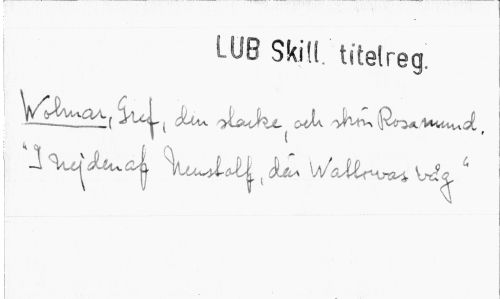 LUB Skill. titelreg.
Wolmar, Gref, den starke, och skön Rosamund.
"I nejden af Neustolf, där Wallowas våg"